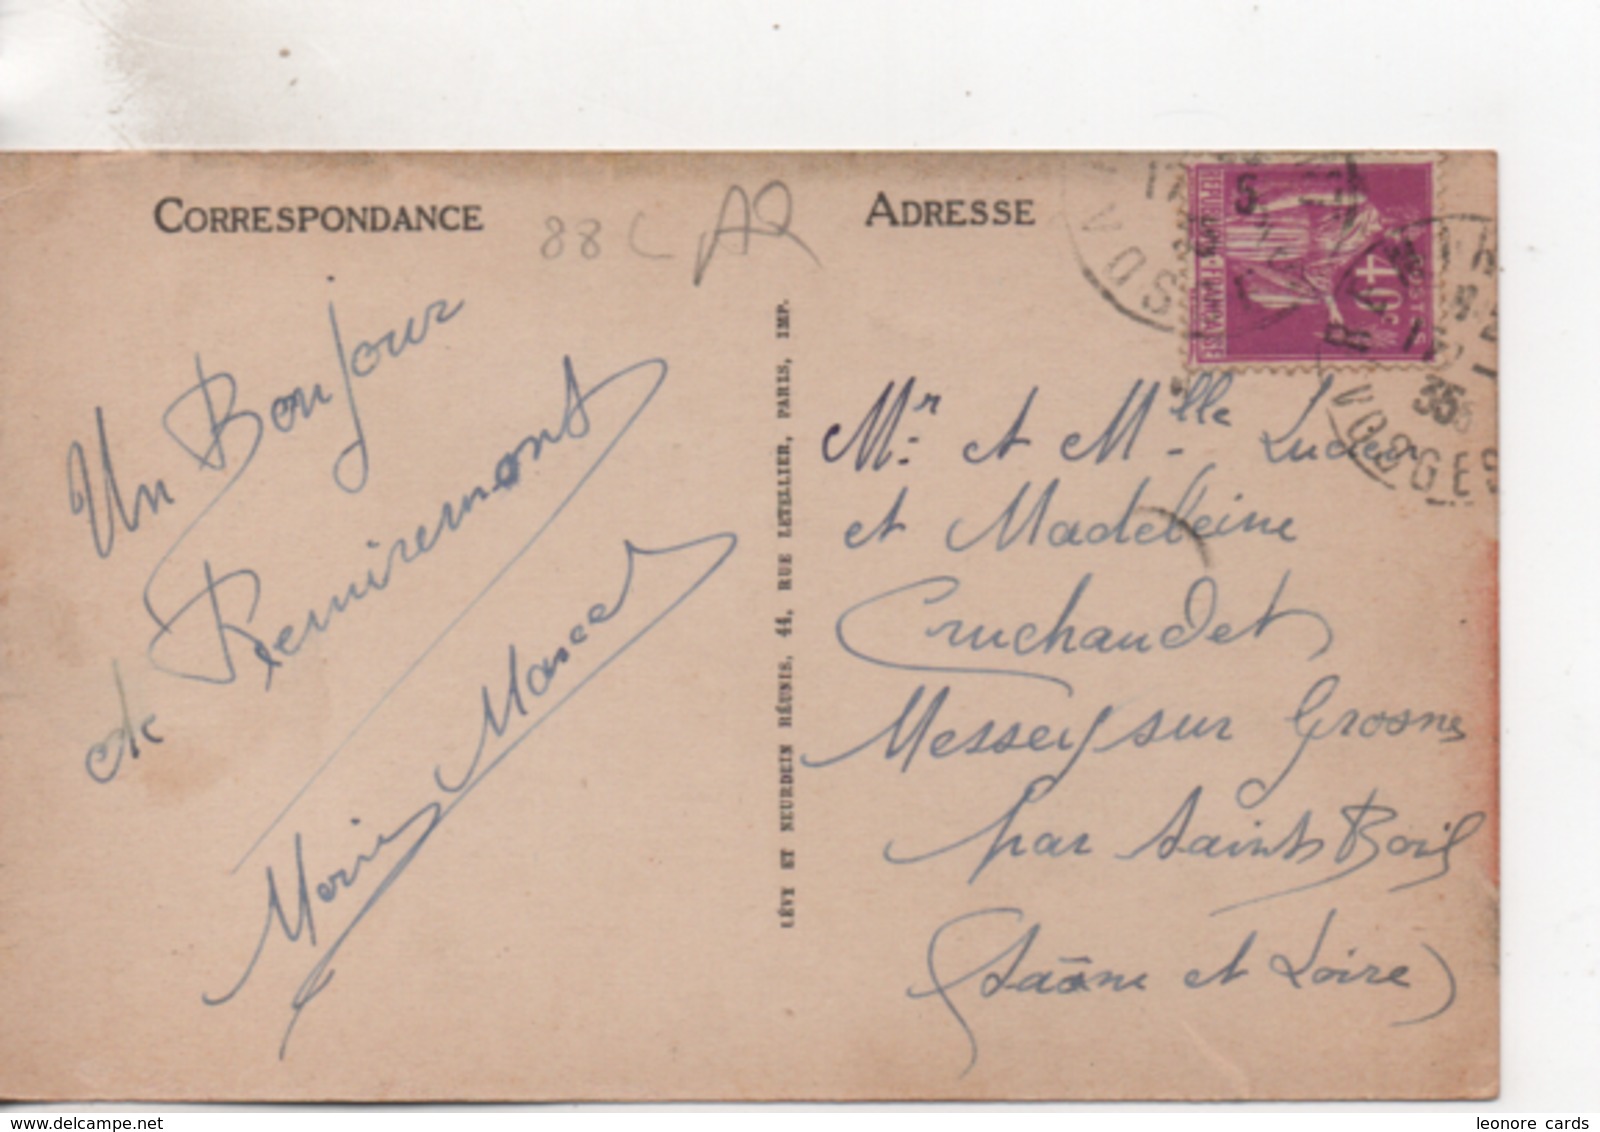 CORRESPONDANCE
88 C AQ
ADRESSE
Un Bonjour
de Remiremont
Marcel
LÉVY ET NEURDEIN RÉUNIS, 44, RUE LETELLIER, PARIS, IMP.
RÉPUBLIQUE FRANÇAISE
POSTES
40c
VOSGES
35
Mr. et Mlle Lucien
et Madeleine
Cruchaudet
Messey sur Grosne
par Saint Boil
(Saône et Loire)
delcampe.net
leonore cards